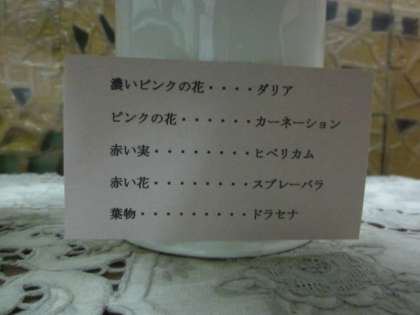 濃いピンクの花・・・・ダリア
ピンクの花・・・・・・カーネーション
赤い実・・・・・・・・ヒペリカム
赤い花・・・・・・・・スプレーバラ
葉物・・・・・・・・・ドラセナ